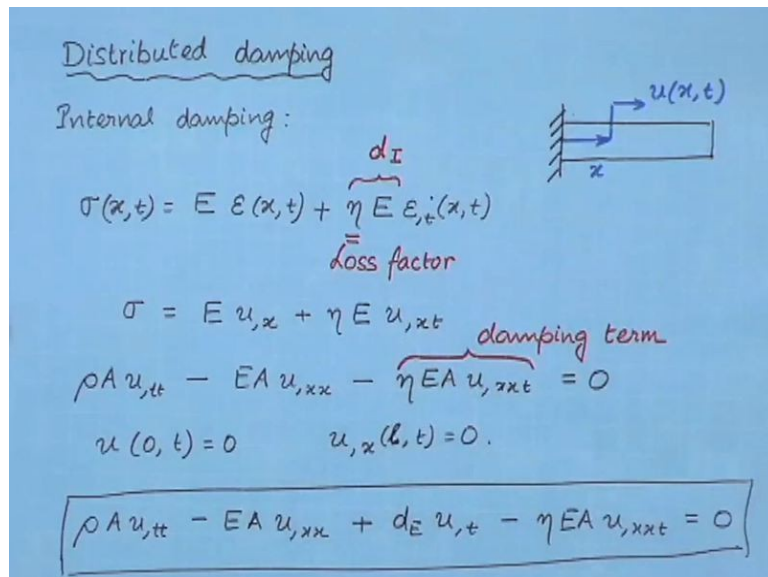 Distributed damping
u(x,t)
Internal damping:
x
d_I
σ(x,t) = E ε(x,t) + η E ε,t(x,t)
Loss factor
σ = E u,x + η E u,xt
damping term
ρA u,tt − EA u,xx − η EA u,xxt = 0
u (0, t) = 0 u,x(l, t) = 0.
ρA u,tt − EA u,xx + d_E u,t − η EA u,xxt = 0